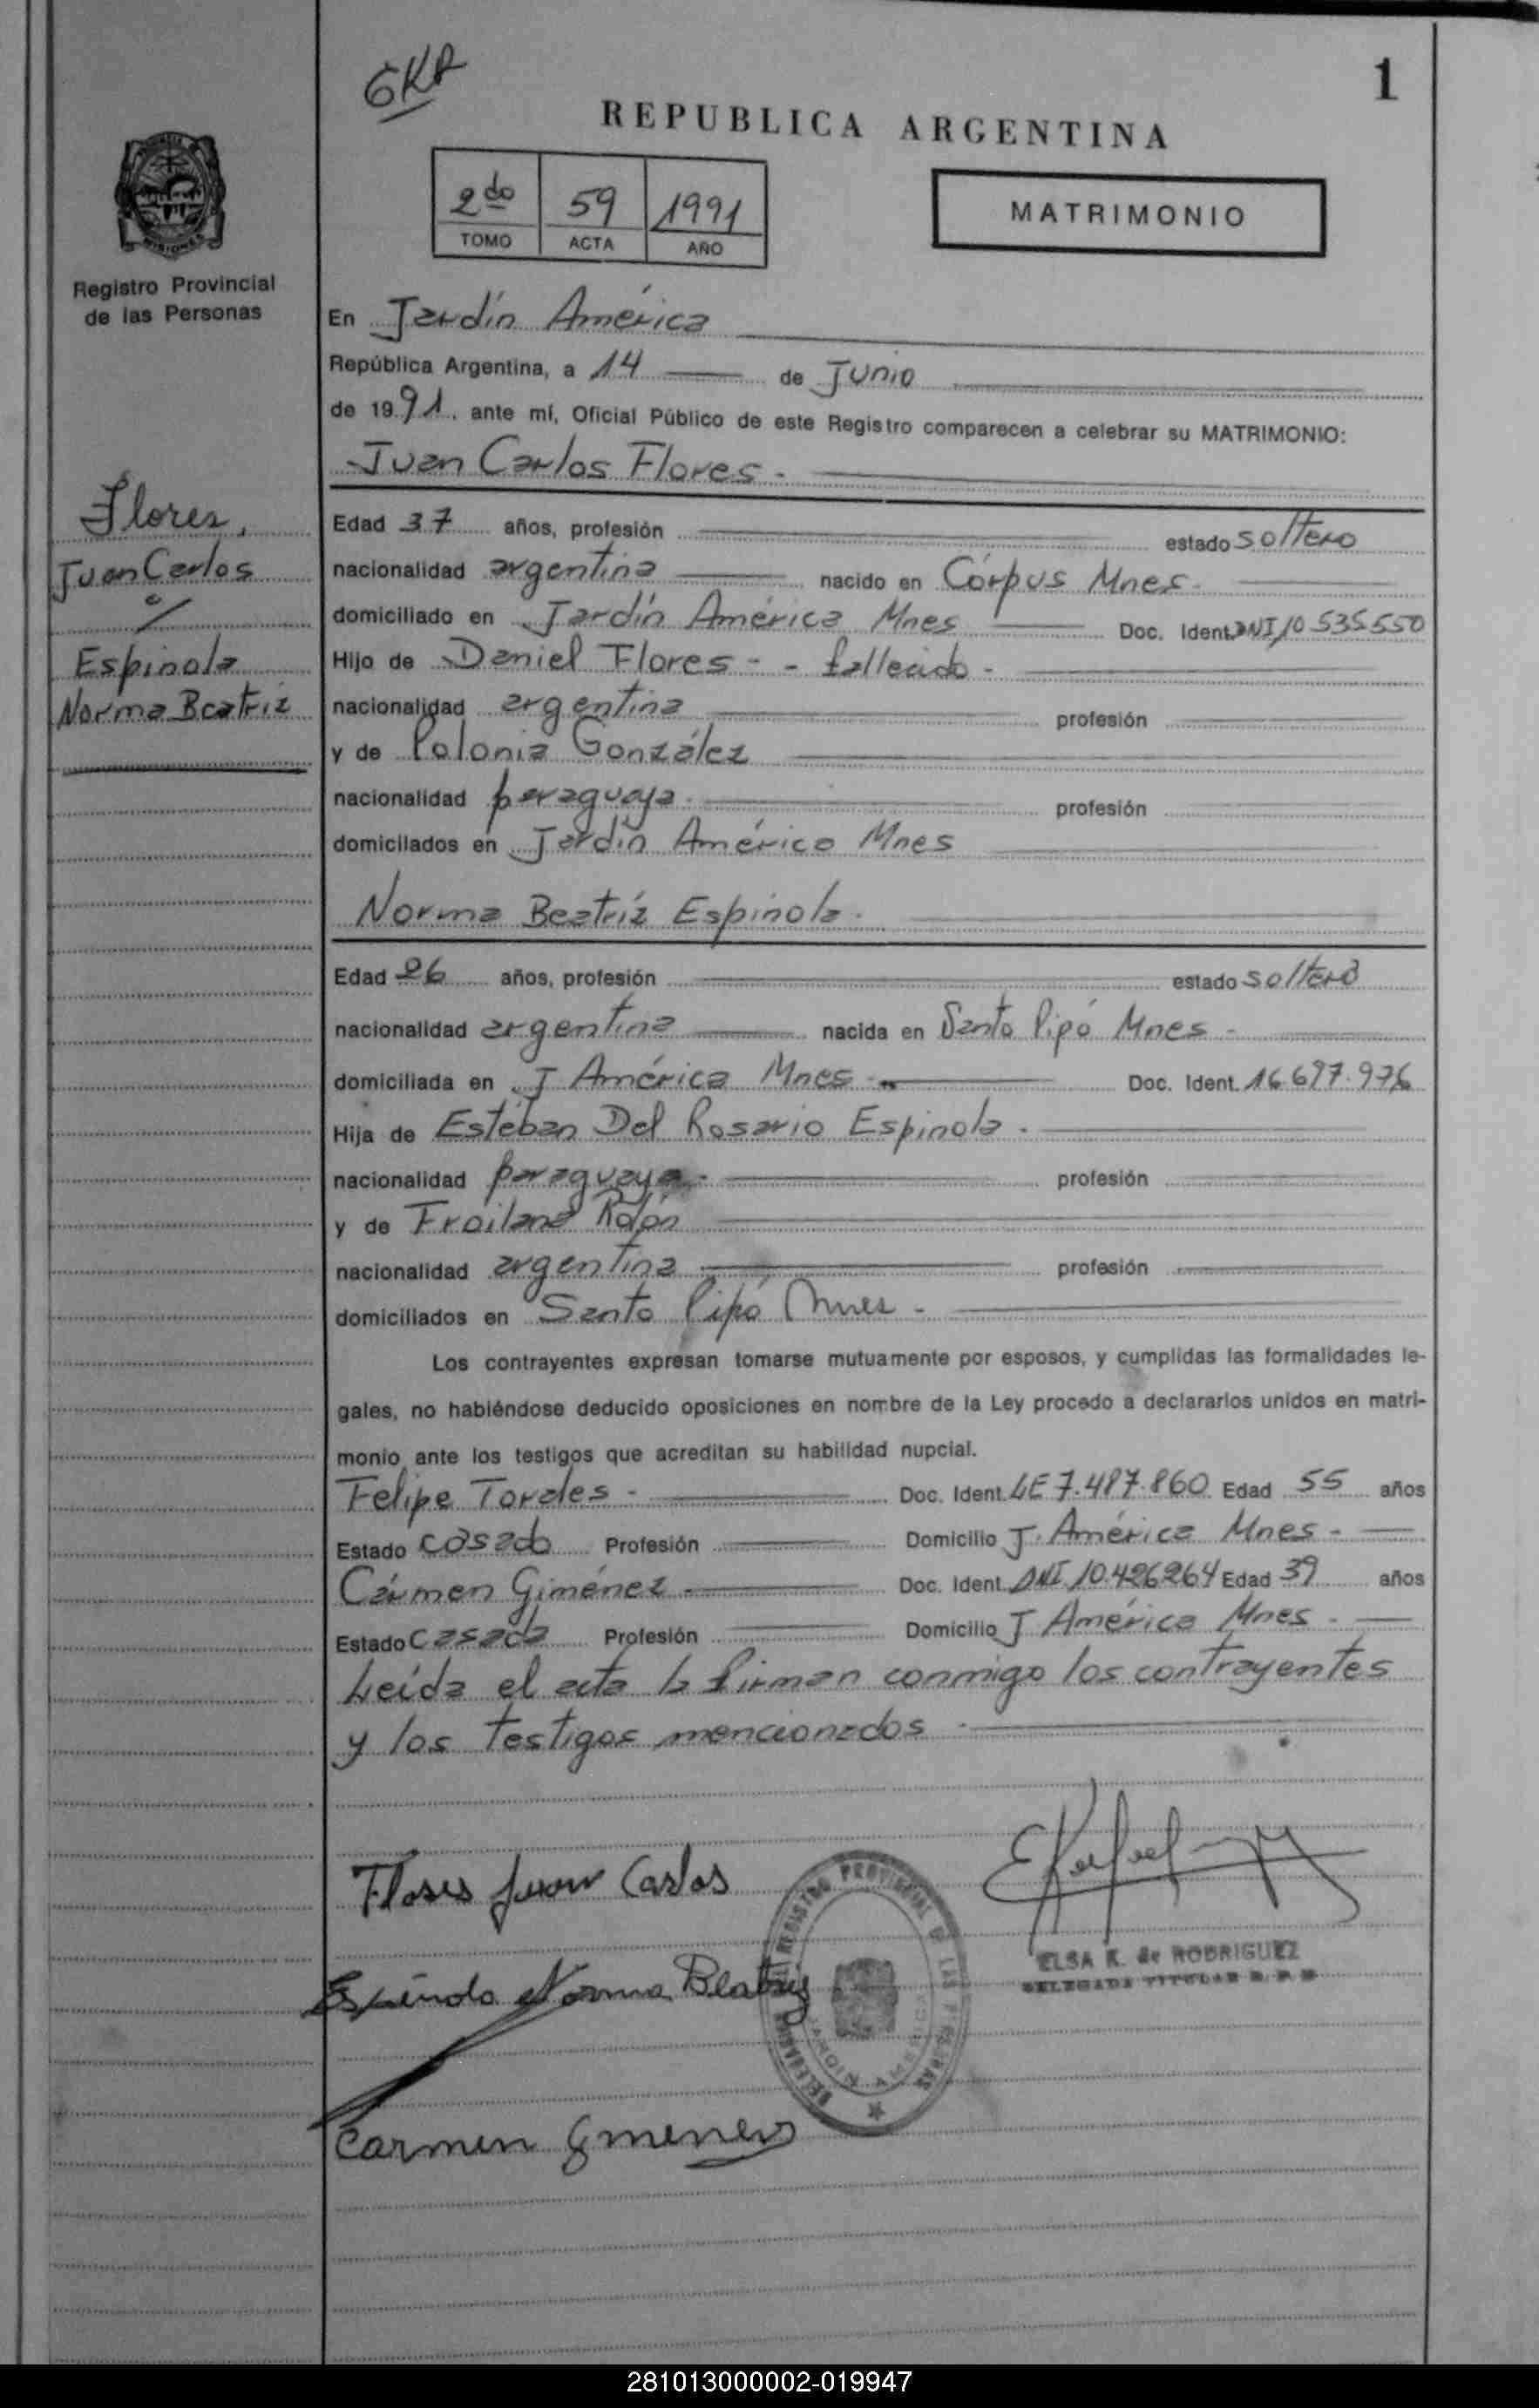 GKR
1
REPUBLICA ARGENTINA
2do 59 1991
TOMO ACTA AÑO
MATRIMONIO
MISIONES
Registro Provincial
de las Personas
Flores,
Juan Carlos
c/
Espinola
Norma Beatriz
En Jardín América
República Argentina, a 14 de Junio
de 1991, ante mí, Oficial Público de este Registro comparecen a celebrar su MATRIMONIO:
Juan Carlos Flores.-
Edad 37 años, profesión estado soltero
nacionalidad argentina nacido en Córpus Mnes.
domiciliado en Jardín América Mnes Doc. Ident. DNI 10.535.550
Hijo de Daniel Flores - - fallecido -
nacionalidad argentina profesión
y de Polonia González
nacionalidad paraguaya. profesión
domicilados en Jardín América Mnes
Norma Beatríz Espinola.
Edad 26 años, profesión estado soltera
nacionalidad argentina nacida en Santo Pipó Mnes -
domiciliada en J América Mnes - Doc. Ident. 16.697.976
Hija de Estéban Del Rosario Espinola.
nacionalidad paraguaya. profesión
y de Froilana Rolón
nacionalidad argentina profesión
domiciliados en Santo Pipó Mnes -
Los contrayentes expresan tomarse mutuamente por esposos, y cumplidas las formalidades le-
gales, no habiéndose deducido oposiciones en nombre de la Ley procedo a declararlos unidos en matri-
monio ante los testigos que acreditan su habilidad nupcial.
Felipe Torales - Doc. Ident. LE 7.487.860 Edad 55 años
Estado casado Profesión Domicilio J. América Mnes -
Cármen Giménez - Doc. Ident. DNI 10.426264 Edad 39 años
Estado casada Profesión Domicilio J América Mnes -
Leída el acta la firman conmigo los contrayentes
y los testigos mencionados -
Flores Juan Carlos
Espínola Norma Beatriz
DELEGACION REGISTRO PROVINCIAL DE LAS PERSONAS
JARDIN AMERICA
ELSA K. de RODRIGUEZ
DELEGADA TITULAR R. P. P.
Carmen Gimenez
281013000002-019947